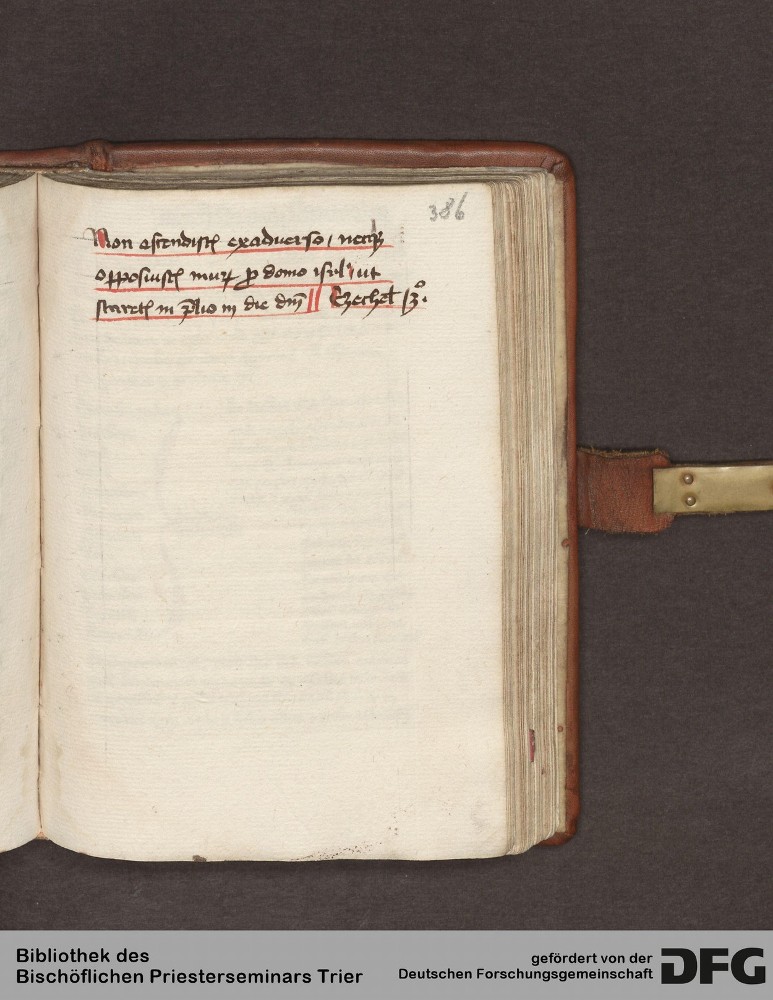 386
Non ascendistꝭ exaduerso / neqꝫ
opposuistꝭ muꝝ ꝓ domo isrl' / ut
staretꝭ in p̄lio in die dn̄i || Ezechel 13º.
Bibliothek des
Bischöflichen Priesterseminars Trier
gefördert von der
Deutschen Forschungsgemeinschaft
DFG